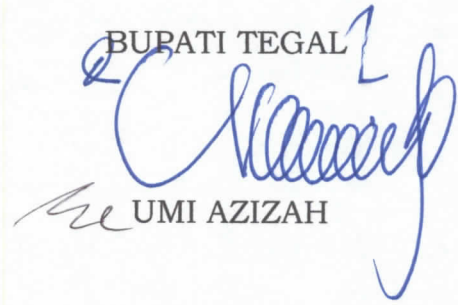 BUPATI TEGAL
UMI AZIZAH